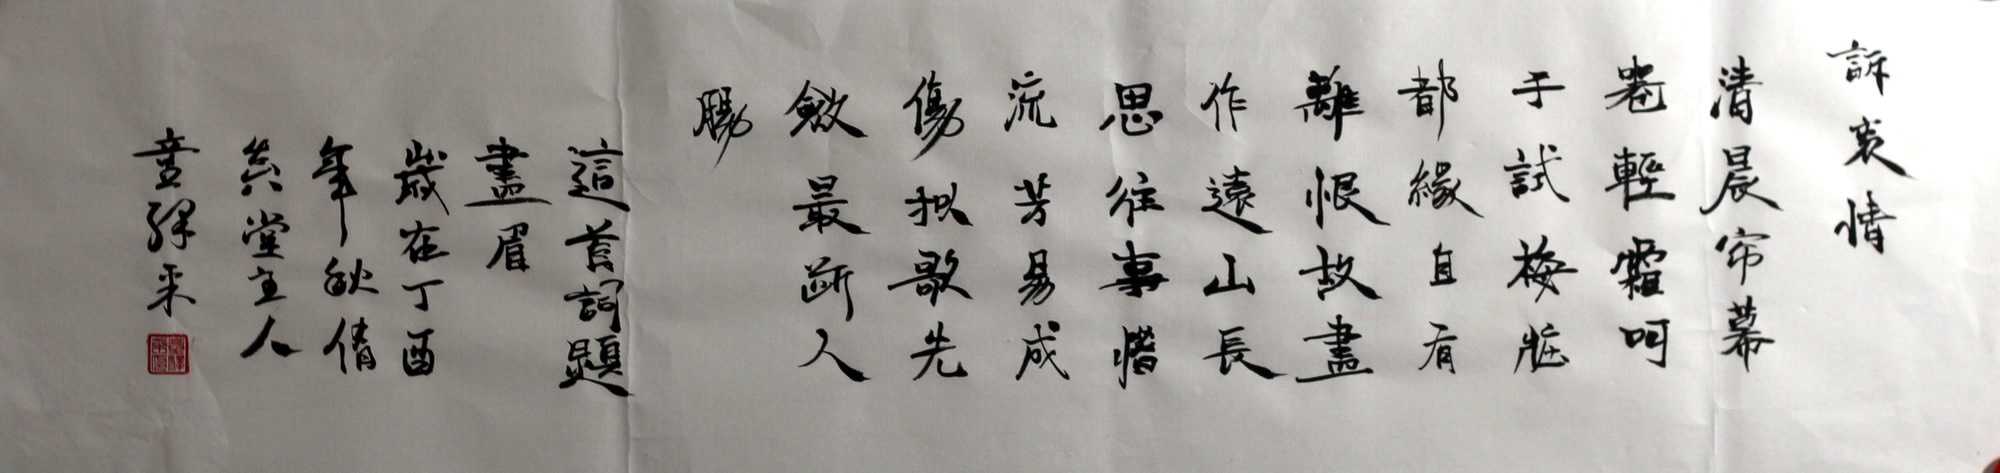 訴衷情
清晨帘幕
卷輕霜呵
手試梅妝
都緣自有
離恨故畫
作遠山長
思往事惜
流芳易成
傷拟歌先
斂最斷人
腸
這首詞題
畫眉
歲在丁酉
年秋倩
堂主人
童采